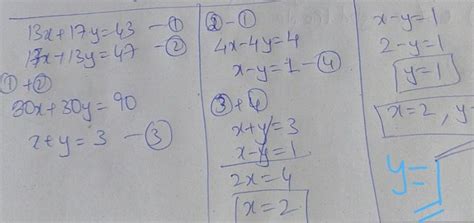 13x+17y=43 — ①
17x+13y=47 — ②
①+②
30x+30y=90
x+y=3 — ③
②-①
4x-4y=4
x-y=1 — ④
③+④
x+y=3
x-y=1
2x=4
x=2
x-y=1
2-y=1
y=1
x=2, y
y=1